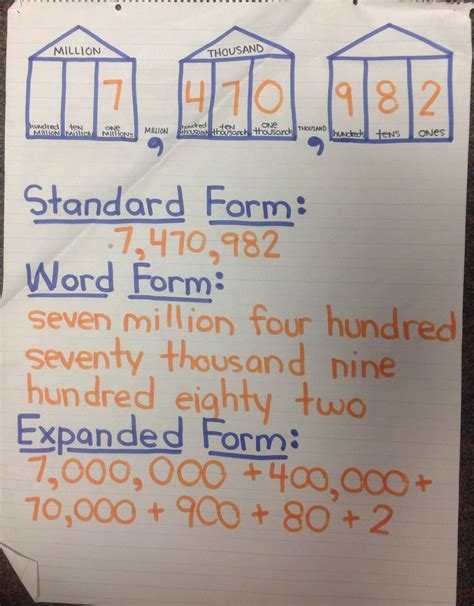 MILLION THOUSAND
7 470 982
hundred ten one hundred ten one
million million millions MILLION thousand thousands thousands THOUSAND hundreds tens ones
, ,
Standard Form:
7,470,982
Word Form:
seven million four hundred
seventy thousand nine
hundred eighty two
Expanded Form:
7,000,000 + 400,000 +
70,000 + 900 + 80 + 2